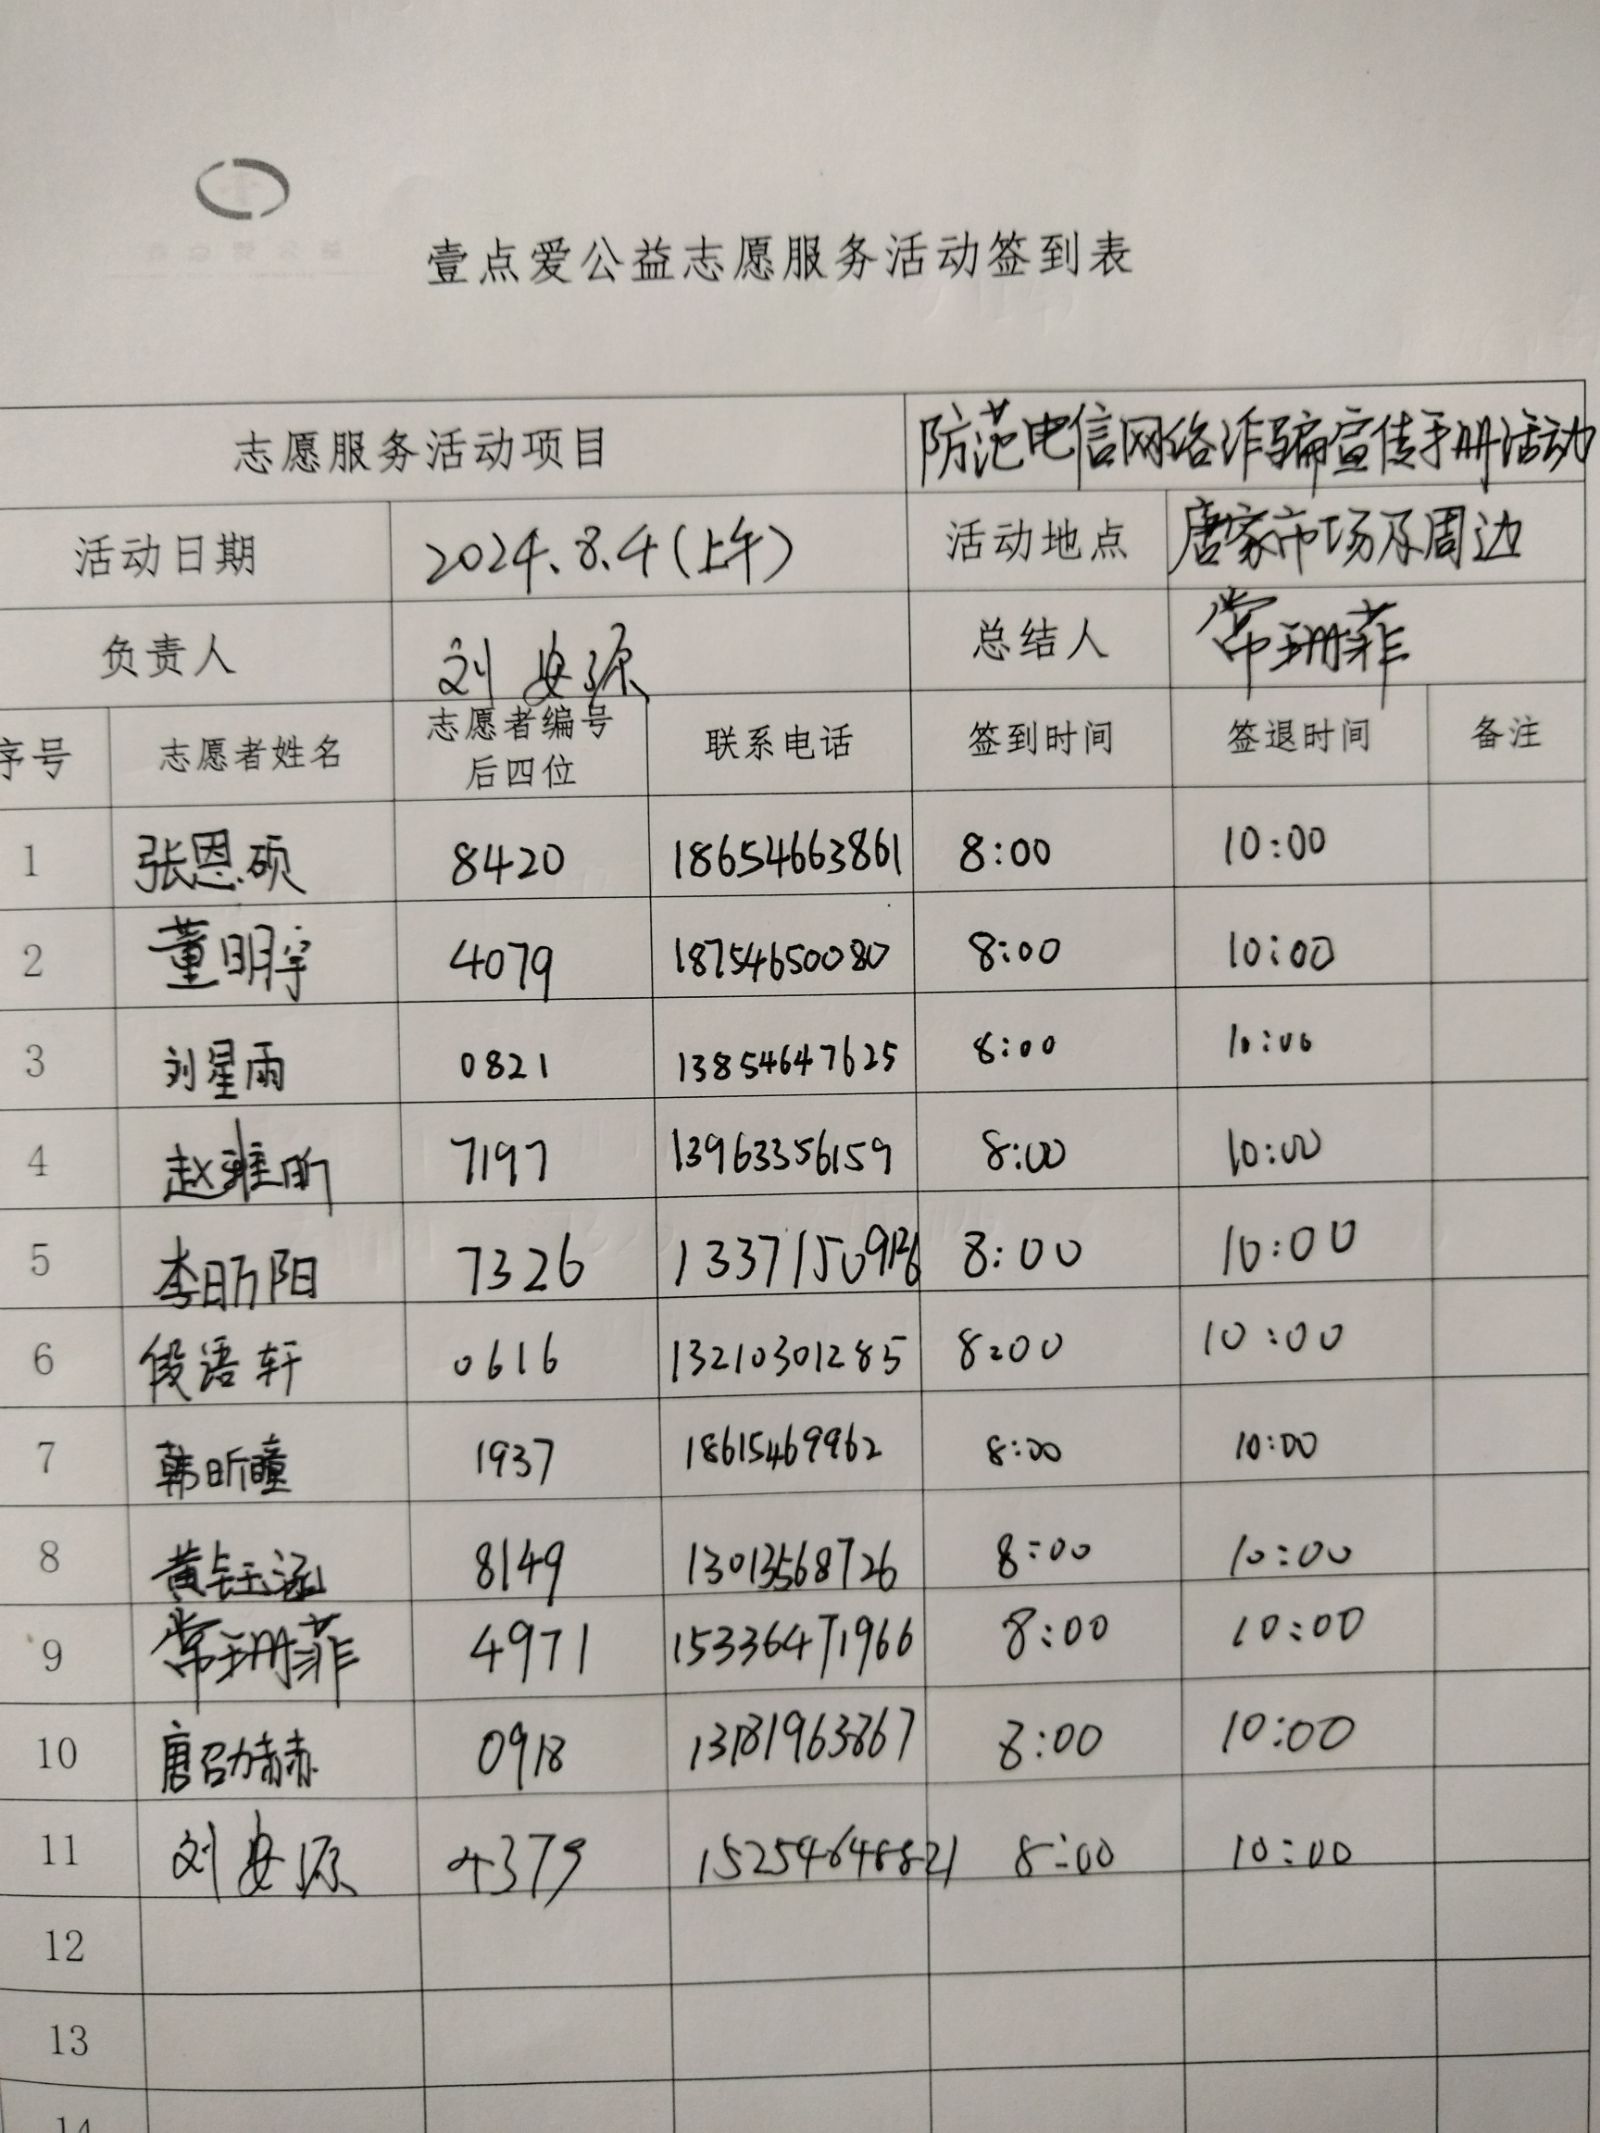 壹点爱公益志愿服务活动签到表
志愿服务活动项目 防范电信网络诈骗宣传手册活动
活动日期 2024.8.4(上午) 活动地点 唐家市场及周边
负责人 刘安源 总结人 常珊菲
序号 志愿者姓名 志愿者编号 联系电话 签到时间 签退时间 备注
后四位
1 张恩硕 8420 18654663861 8:00 10:00
2 董明宇 4079 18754650080 8:00 10:00
3 刘星雨 0821 13854647625 8:00 10:00
4 赵雅昕 7197 13963356159 8:00 10:00
5 李昕阳 7326 8:00 10:00
6 段语轩 0616 13210301285 8:00 10:00
7 韩昕瞳 1937 18615469962 8:00 10:00
8 黄钰涵 8149 13013568726 8:00 10:00
9 常珊菲 4971 15336471966 8:00 10:00
10 唐劭赫 0918 13181963867 8:00 10:00
11 刘安源 4379 15254648821 8:00 10:00
12
13
14